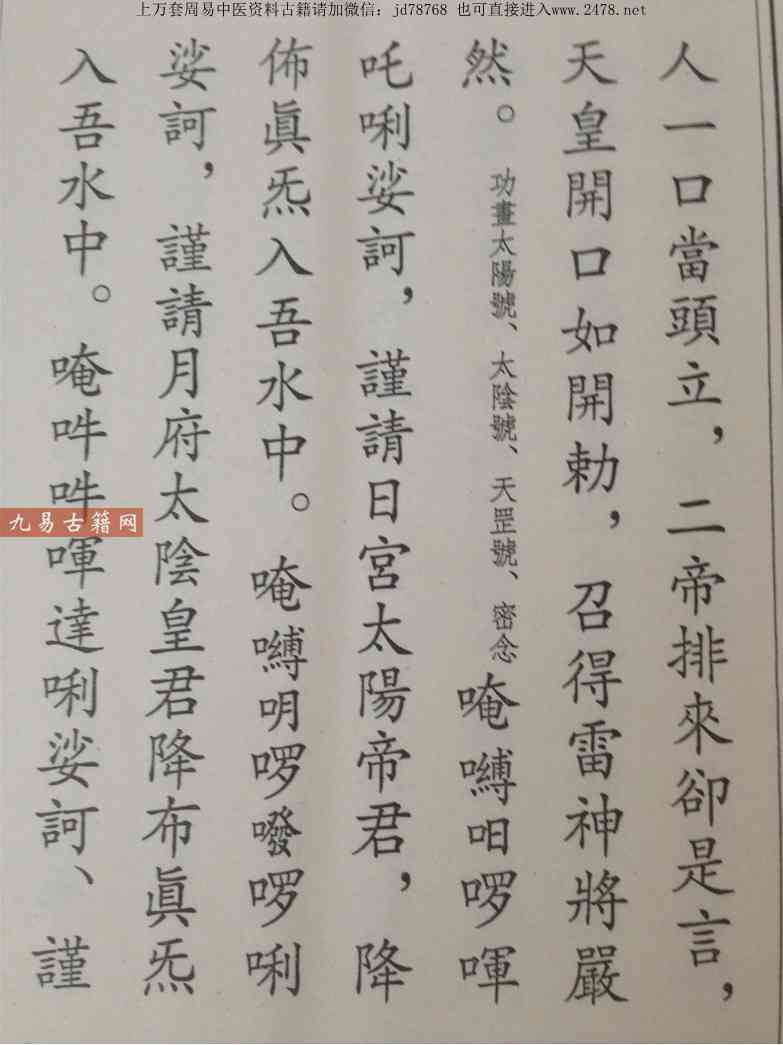 上万套周易中医资料古籍请加微信：jd78768 也可直接进入www.2478.net
人一口當頭立，二帝排來卻是言，
天皇開口如開勅，召得雷神將嚴
然。功畫太陽號、太陰號、天罡號、密念唵嚩呬啰㖶
吒唎娑訶，謹請日宮太陽帝君，降
佈真炁入吾水中。唵嚩明啰發啰唎
娑訶，謹請月府太陰皇君降布真炁
入吾水中。唵吽吽㖶達唎娑訶、謹
九易古籍网